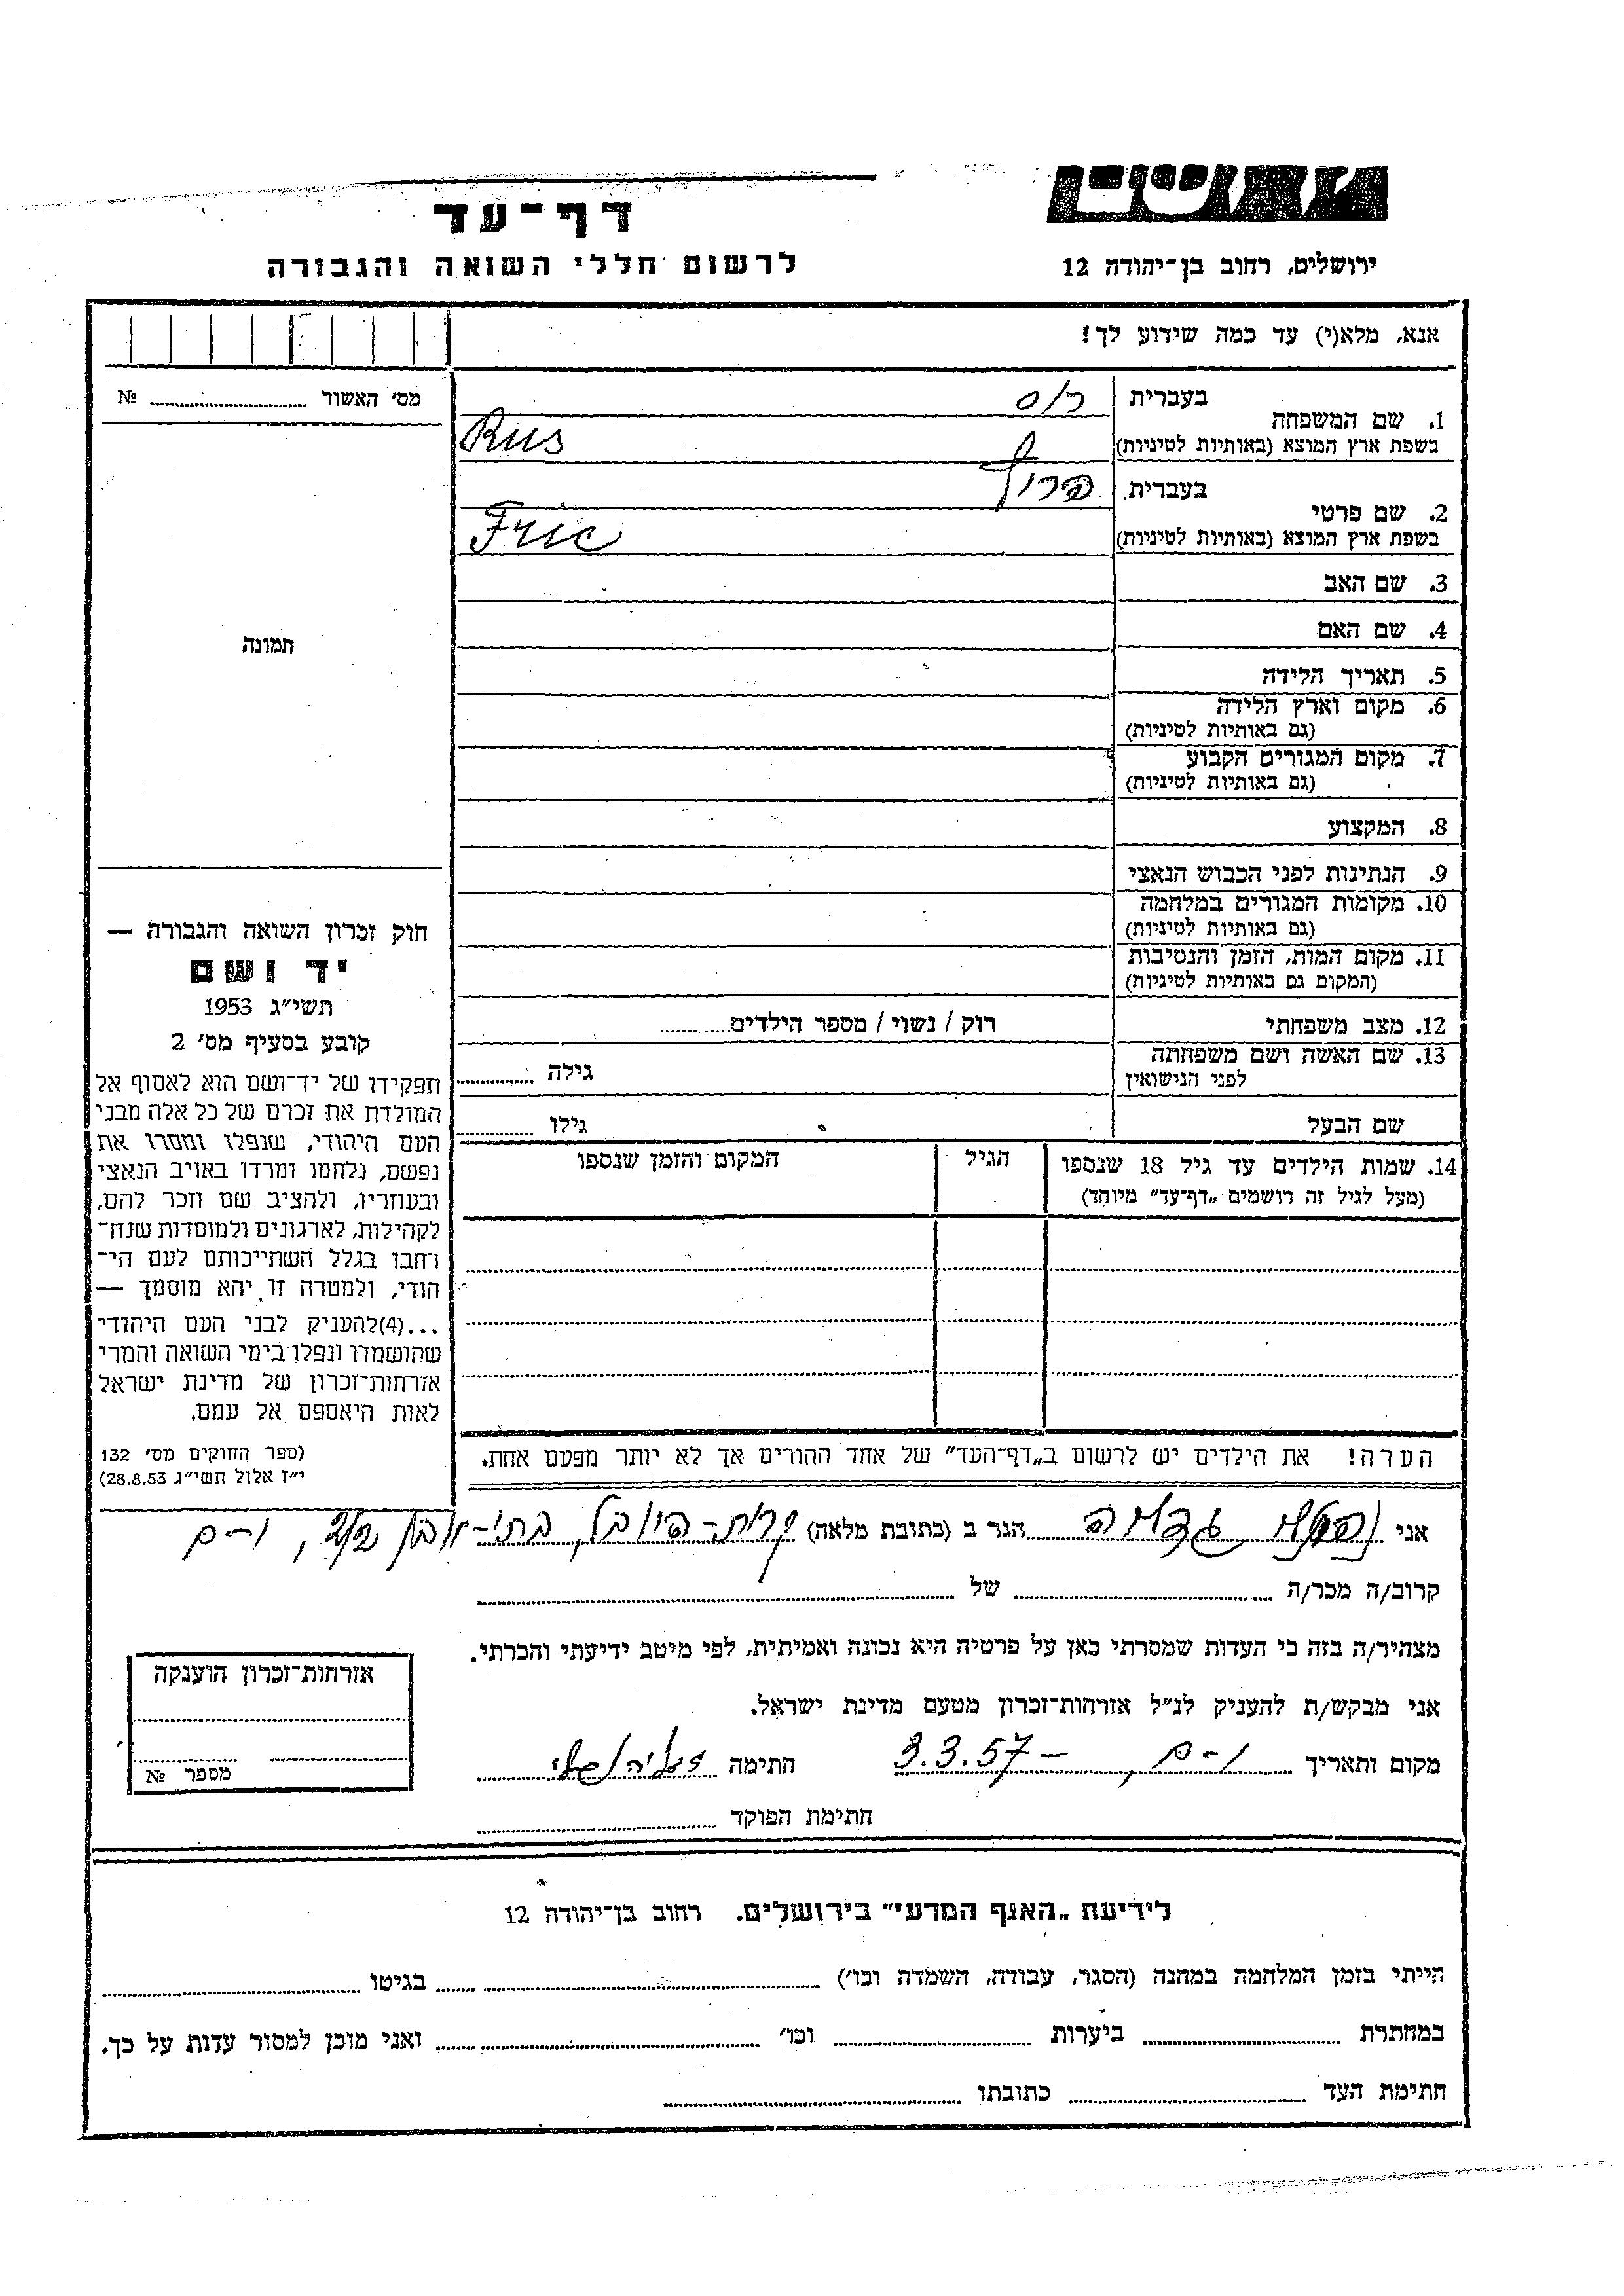 יד ושם
ירושלים, רחוב בן־יהודה 12
דף־עד
לרשום חללי השואה והגבורה
אנא, מלא(י) עד כמה שידוע לך!
מס׳ האשור № ........
1. שם המשפחה
בעברית רוס
בשפת ארץ המוצא (באותיות לטיניות) Rus
2. שם פרטי
בעברית
בשפת ארץ המוצא (באותיות לטיניות) Fric
3. שם האב
4. שם האם
5. תאריך הלידה
6. מקום וארץ הלידה
(גם באותיות לטיניות)
7. מקום המגורים הקבוע
(גם באותיות לטיניות)
8. המקצוע
9. הנתינות לפני הכבוש הנאצי
10. מקומות המגורים במלחמה
(גם באותיות לטיניות)
11. מקום המות, הזמן והנסיבות
(המקום גם באותיות לטיניות)
12. מצב משפחתי רוק / נשוי / מספר הילדים........
13. שם האשה ושם משפחתה
לפני הנישואין גילה ........
שם הבעל גילו ........
14. שמות הילדים עד גיל 18 שנספו הגיל המקום והזמן שנספו
(מעל לגיל זה רושמים „דף־עד״ מיוחד)
הערה! את הילדים יש לרשום ב„דף־העד״ של אחד ההורים אך לא יותר מפעם אחת.
תמונה
חוק זכרון השואה והגבורה —
יד ושם
תשי״ג 1953
קובע בסעיף מס׳ 2
תפקידו של יד־ושם הוא לאסוף אל
המולדת את זכרם של כל אלה מבני
העם היהודי, שנפלו ומסרו את
נפשם, נלחמו ומרדו באויב הנאצי
ובעוזריו, ולהציב שם וזכר להם,
לקהילות, לארגונים ולמוסדות שנח־
רחבו בגלל השתייכותם לעם הי־
הודי, ולמטרה זו יהא מוסמך —
...(4)להעניק לבני העם היהודי
שהושמדו ונפלו בימי השואה והמרי
אזרחות־זכרון של מדינת ישראל
לאות היאספם אל עמם.
(ספר החוקים מס׳ 132
י״ז אלול תשי״ג 28.8.53)
אני הגר ב (כתובת מלאה) קרית-היובל, בתי-
קרוב/ה מכר/ה ........ של ........
מצהיר/ה בזה כי העדות שמסרתי כאן על פרטיה היא נכונה ואמיתית, לפי מיטב ידיעתי והכרתי.
אני מבקש/ת להעניק לנ״ל אזרחות־זכרון מטעם מדינת ישראל.
מקום ותאריך י-ם, 3.3.57 – חתימה
חתימת הפוקד ........
אזרחות־זכרון הוענקה
מספר №
לידיעת „האגף המדעי״ בירושלים. רחוב בן־יהודה 12
הייתי בזמן המלחמה במחנה (הסגר, עבודה, השמדה וכו׳) ........ בגיטו ........
במחתרת ........ ביערות ........ וכו׳ ........ ואני מוכן למסור עדות על כך.
חתימת העד ........ כתובתו ........